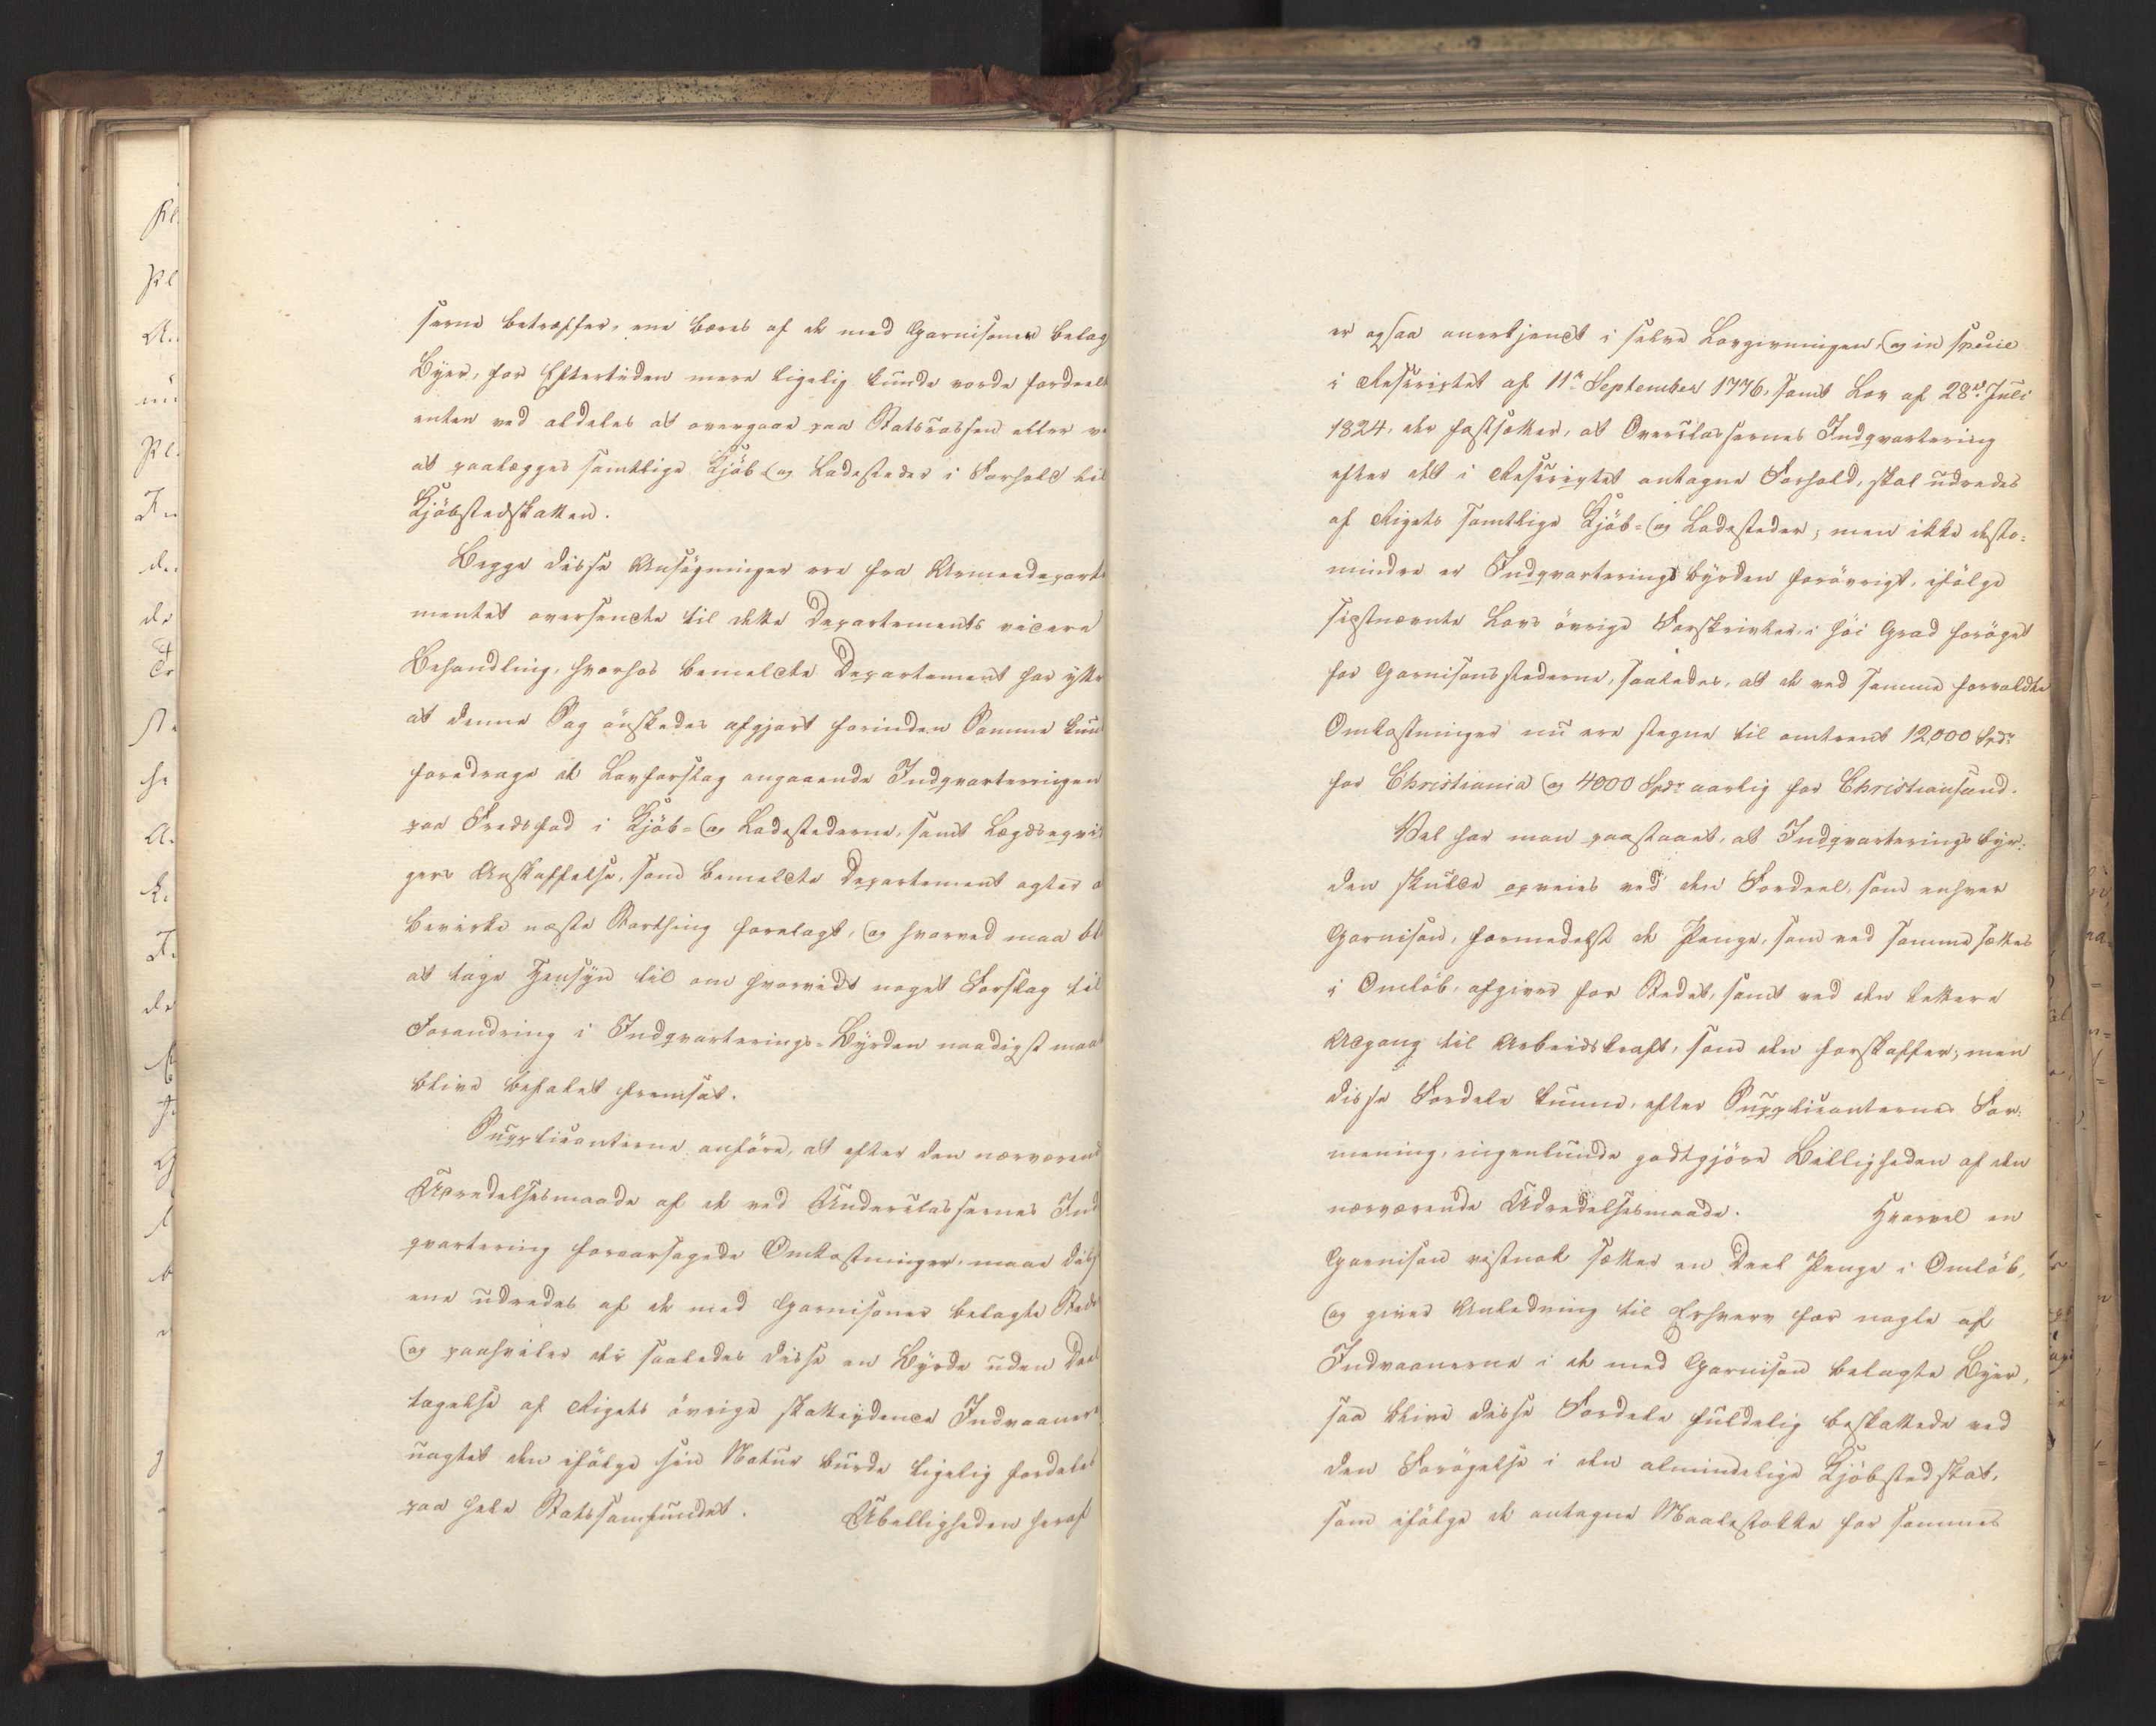 serne betræffer, ene bæres af de med Garnisoner belag
Byer, for Eftertiden mere ligelig kunde vorde fordeelt
enten ved aldeles at overgaae paa Statscassen eller ve
at paalægges samtlige Kjöb- og Ladesteder i Forhold til
Kjöbstedskatten.
Begge disse Ansögninger ere fra Armeedeparte
mentet oversendte til dette Departements videre
Behandling, hvorhos bemeldte Departement har yttr
at denne Sag önskedes afgjort forinden Samme kun
foredrage et Lovforslag angaaende Indqvarteringen
paa Fredsfod i Kjöb- og Ladestederne, samt Lægdseqvi
gers Anskaffelse, som bemeldte Departement agter a
bevirke næste Storthing forelagt, og hvorved maa bl
at tage Hensyn til om hvorvidt noget Forslag til
Forandring i Indqvarterings-Byrden naadigst maat
blive befalet fremsat.
Supplicanterne anföre, at efter den nærværend
Udredelsesmaade af de ved Underclassernes Ind
qvartering foraarsagede Omkostninger, maae diss
ene udredes af de med Garnisoner belagte Stede
og paahviler der saaledes disse en Byrde uden Deel
tagelse af Rigets övrige skatteydende Indvaanere
uagtet den ifölge sin Natur burde ligelig fordeles
paa hele Statssamfundet. Ubilligheden heraf
er ogsaa anerkjendt i selve Lovgivningen, og in specie
i Rescriptet af 11te September 1776, samt Lov af 28de Juli
1824, der fastsætter, at Overclassernes Indqvartering
efter det i Rescriptet antagne Forhold, skal udredes
af Rigets samtlige Kjöb- og Ladesteder; men ikke desto-
mindre er Indqvarterings byrden forövrigt, ifölge
sidstnævnte Lovs övrige Forskrivter, i höi Grad foröget
for Garnisonsstederne, saaledes, at de ved samme forvoldte
Omkostninger nu ere stegne til omtrent 12,000 Spdr
for Christiania og 4000 Spdr aarlig for Christiansand.
Vel har man paastaaet, at Indqvarterings byr-
den skulde opveies ved den Fordeel, som enhver
Garnison, formedelst de Penge, som ved samme sættes
i Omlöb, afgiver for Stedet, samt ved den lettere
Adgang til Arbeidskraft, som den forskaffer; men
disse Fordele kunne, efter Supplicanternes For-
mening, ingenlunde godtgjöre Billigheden af den
nærværende Udredelsesmaade. Hvorvel en
Garnison vistnok sætter en Deel Penge i Omlöb,
og giver Anledning til Erhverv for nogle af
Indvaanerne i de med Garnison belagte Byer,
saa blive disse Fordele fuldelig beskattede ved
den Forögelse i den almindelige Kjöbstedskat,
som ifölge de antagne Maalestokke for sammes